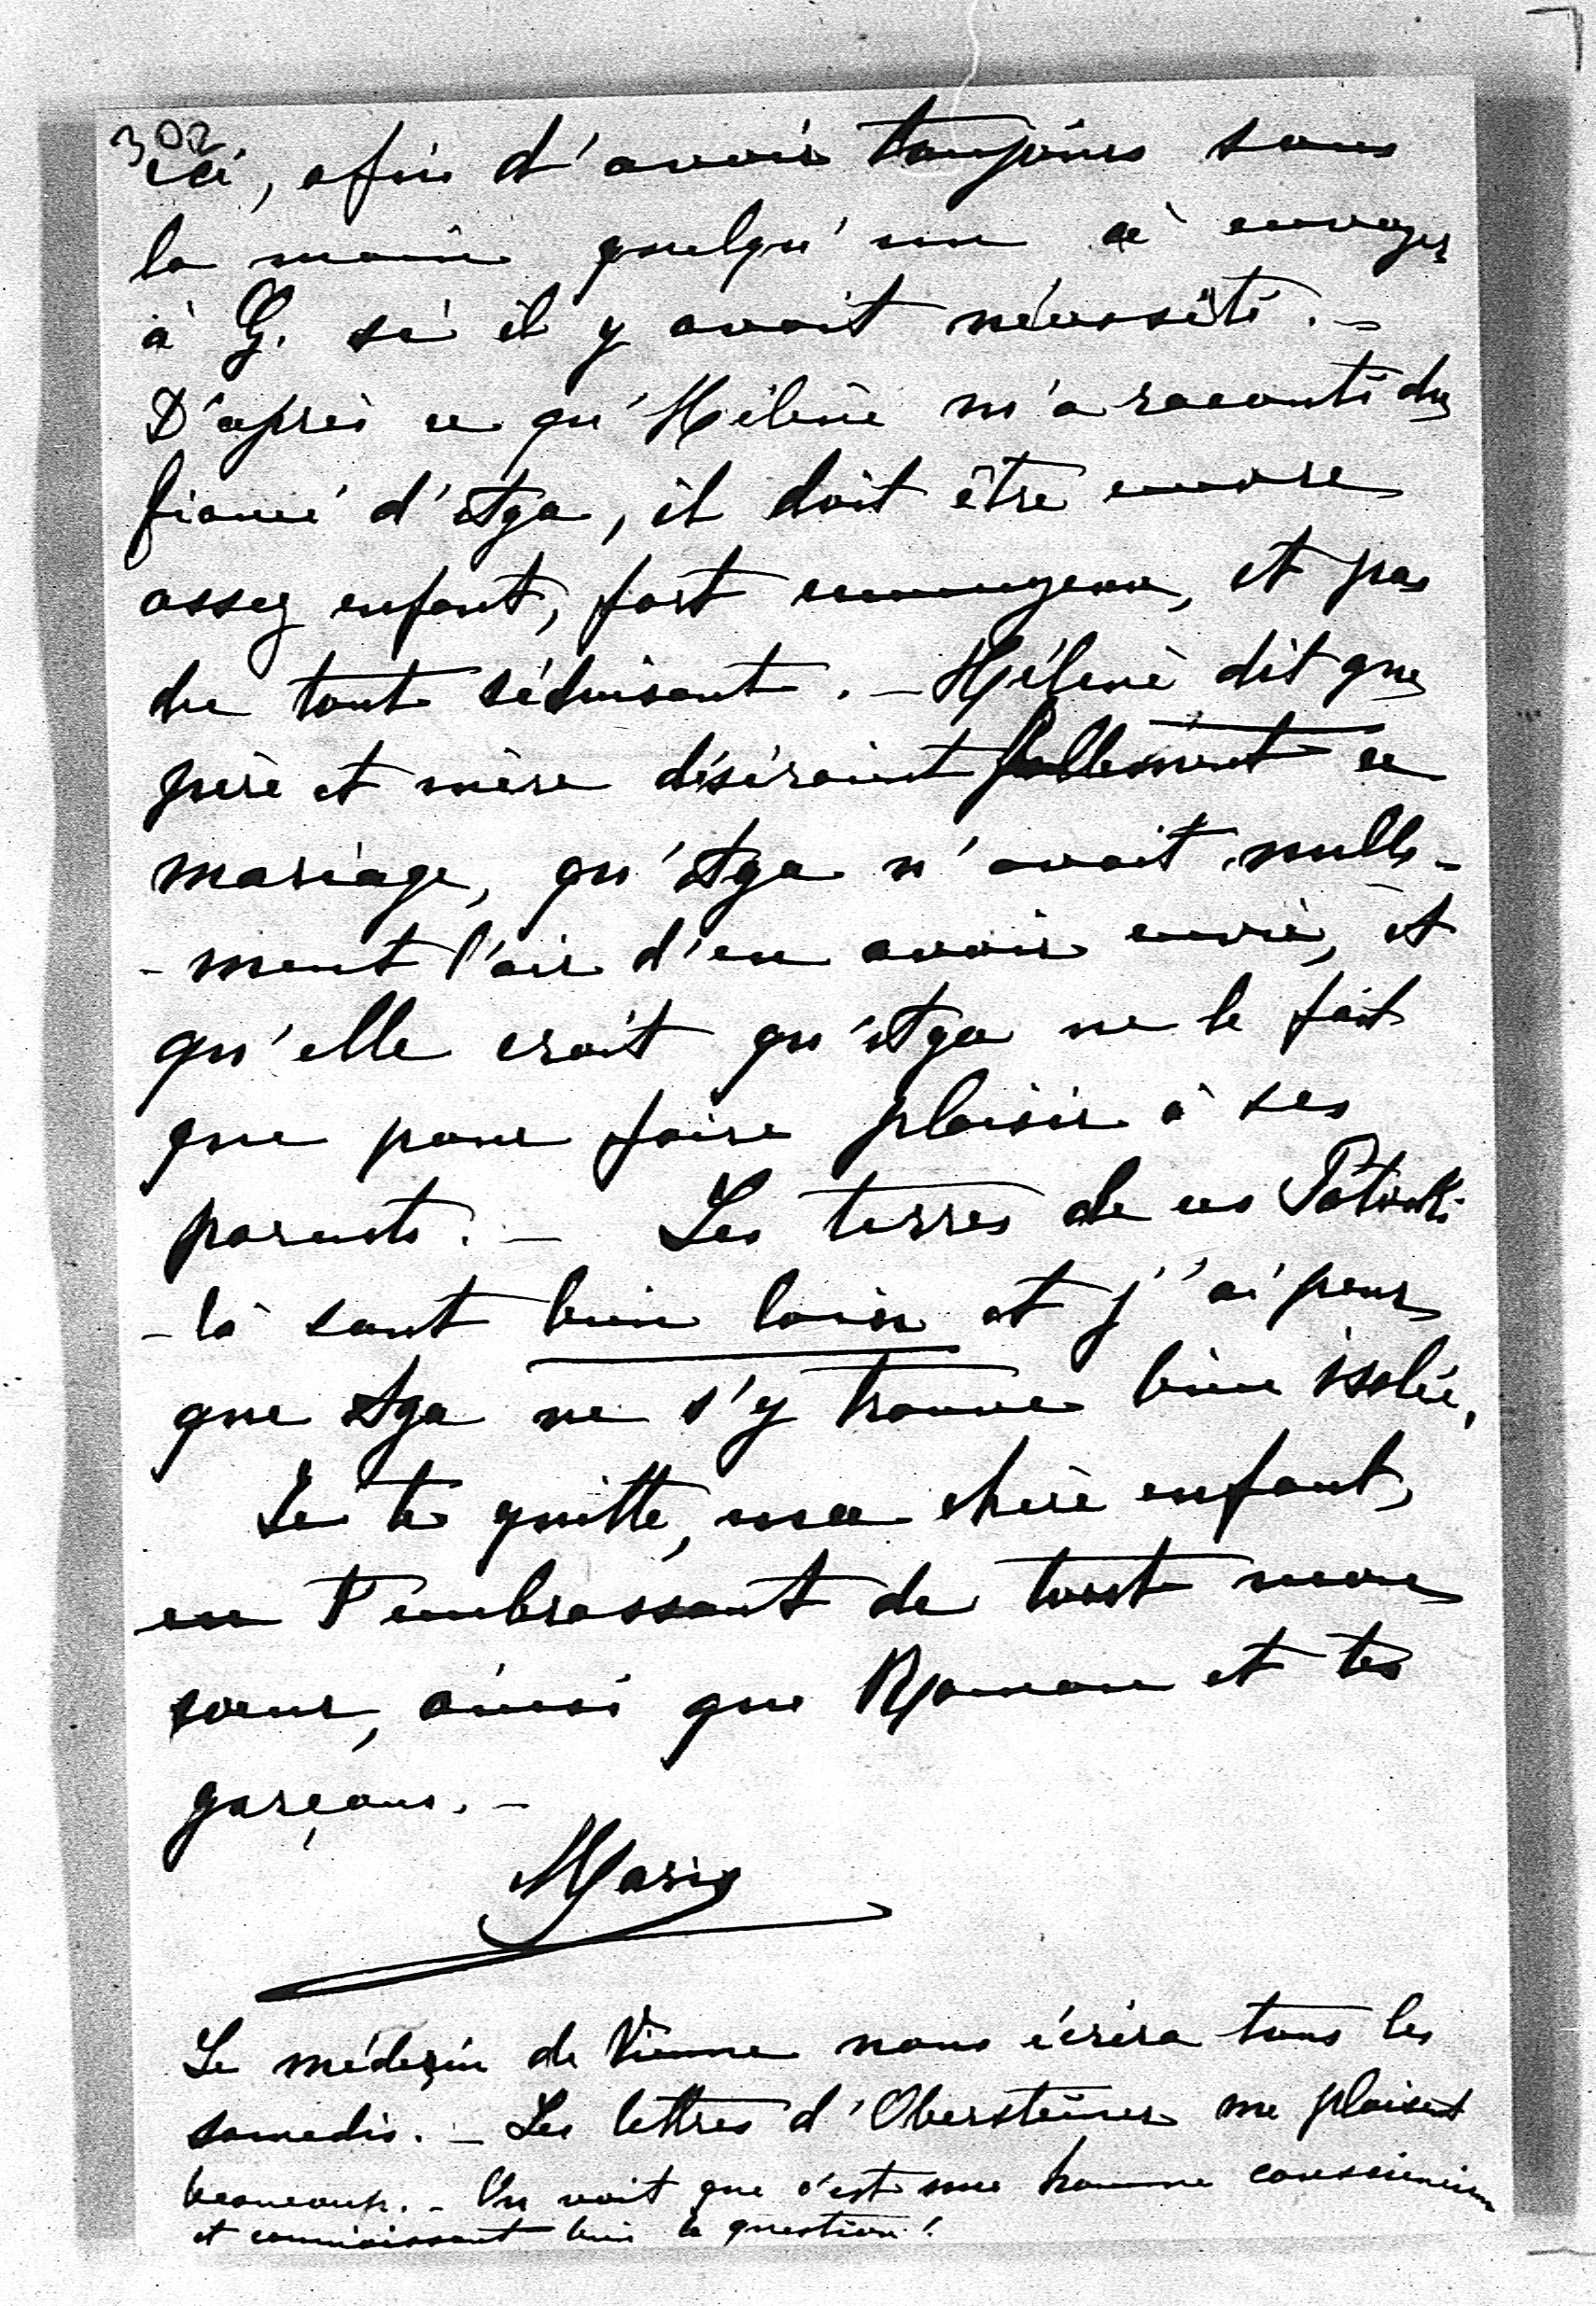 302
ici, afin d'avoir toujours sous
la main quelqu'un à envoyer
à G. si il y avait nécessité. –
D'après ce qu'Hélène m'a raconté du
fiancé d'Aga, il doit être encore
assez enfant, fort ennuyeux, et pas
du tout séduisant. – Hélène dit que
père et mère désiraient follement ce
mariage, qu'Aga n'avait nulle-
-ment l'air d'en avoir envie, et
qu'elle croit qu'Aga ne le fait
que pour faire plaisir à ses
parents. – Les terres de ces Potocki
-là sont bien loin et j'ai peur
que Aga ne s'y trouve bien isolée.
Je te quitte, ma chère enfant,
en t'embrassant de tout mon
coeur, ainsi que Roman et tes
garçons. –
Marie
Le médeçin de Vienne nous écrira tous les
samedis. – Les lettres d'Obersteiner me plaisent
beaucoup. – On voit que c'est un homme consciencieux
et connaissant bien la question!